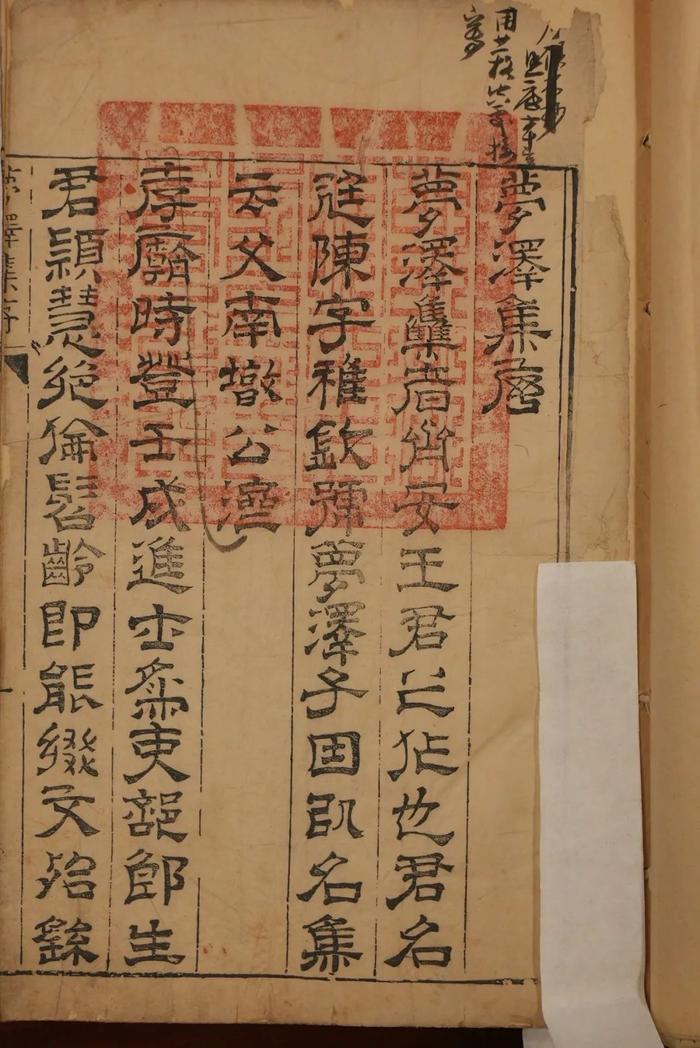 夢澤集序
夢澤雧者齊安王君之作也君名
廷陳字稚欽號夢澤子因以名集
云父南墩公濟
孝廟時登壬戌進士為吏部郎生
君穎慧絕倫髫齡即能綴文殆繇
夢澤集序